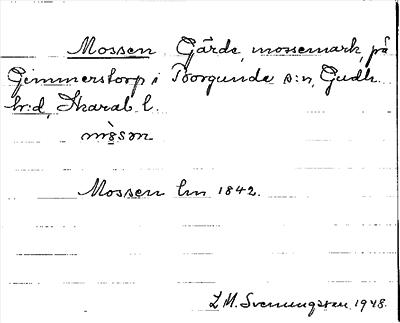 Mossen Gärde, mossemark, på
Gimmerstorp i Borgunda s:n, Gudh.
h:d, Skarab. l.
Mossen lm 1842.
L. M. Svenungsson 1948.